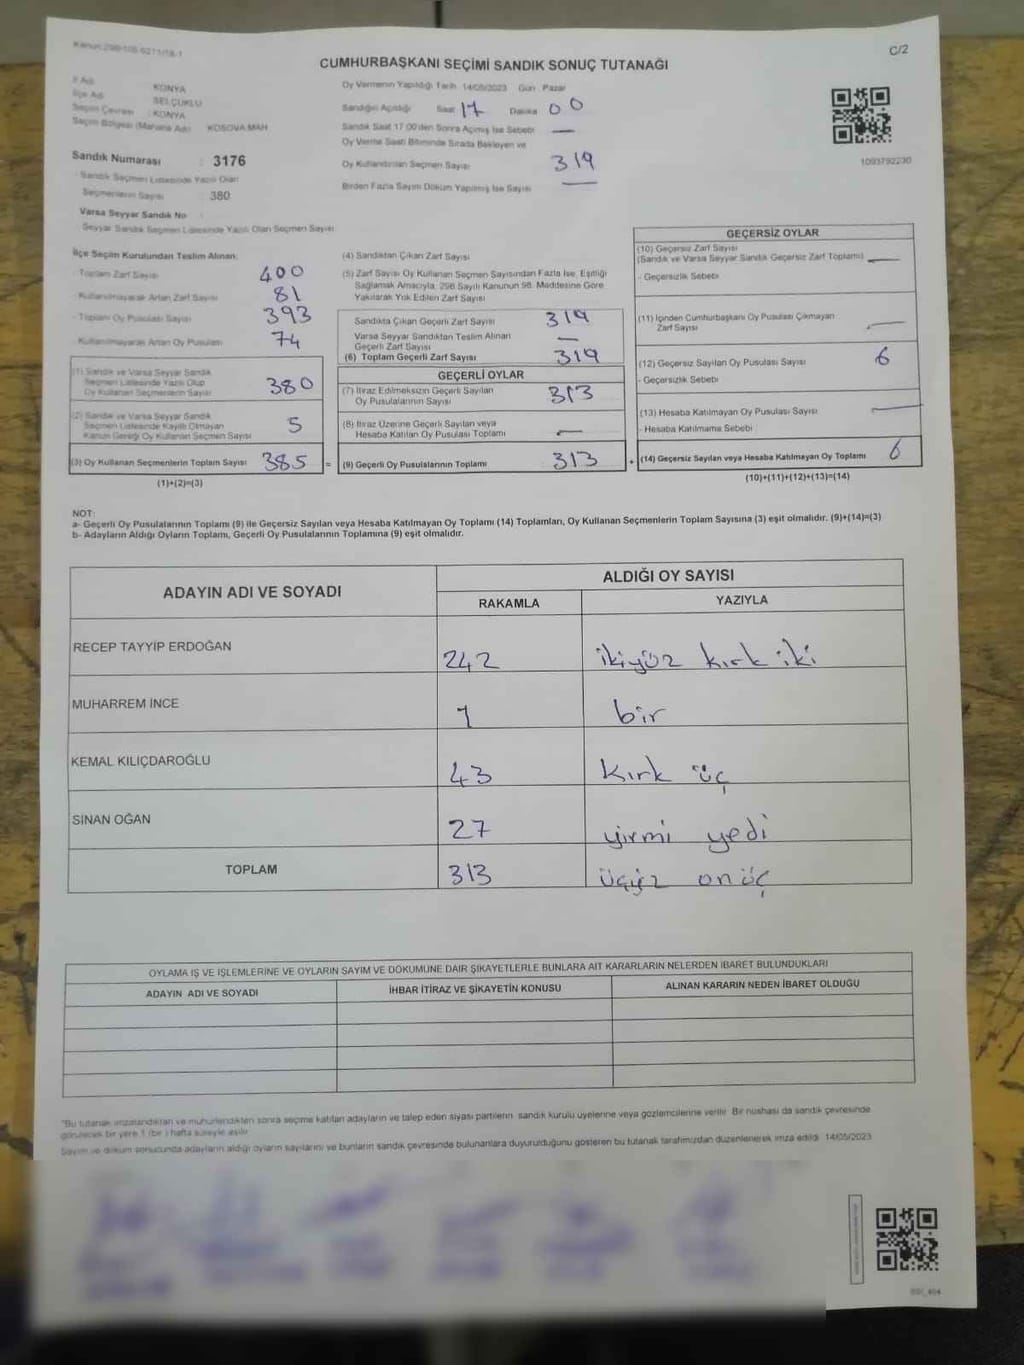 C/2
CUMHURBAŞKANI SEÇİMİ SANDIK SONUÇ TUTANAĞI
İl Adı KONYA
İlçe Adı SELÇUKLU
Seçim Çevresi : KONYA
Seçim Bölgesi (Mahalle Adı) KOSOVA MAH
Sandık Numarası : 3176
Sandık Seçmen Listesinde Yazılı Olan
Seçmenlerin Sayısı : 380
Varsa Seyyar Sandık No
Seyyar Sandık Seçmen Listesinde Yazılı Olan Seçmen Sayısı
Oy Vermenin Yapıldığı Tarih 14/05/2023 Gün Pazar
Sandığın Açıldığı Saat 17 Dakika 00
Sandık Saat 17.00'den Sonra Açılmış İse Sebebi —
Oy Verme Saati Bitiminde Sırada Bekleyen ve
Oy Kullandırılan Seçmen Sayısı 319
Birden Fazla Sayım Döküm Yapılmış İse Sayısı —
1093792230
İlçe Seçim Kurulundan Teslim Alınan:
- Toplam Zarf Sayısı 400
- Kullanılmayarak Artan Zarf Sayısı 81
- Toplam Oy Pusulası Sayısı 393
- Kullanılmayarak Artan Oy Pusulası 74
(1) Sandık ve Varsa Seyyar Sandık
Seçmen Listesinde Yazılı Olup
Oy Kullanan Seçmenlerin Sayısı 380
(2) Sandık ve Varsa Seyyar Sandık
Seçmen Listesinde Kayıtlı Olmayan
Kanun Gereği Oy Kullanan Seçmen Sayısı 5
(3) Oy Kullanan Seçmenlerin Toplam Sayısı 385 =
(1)+(2)=(3)
(4) Sandıktan Çıkan Zarf Sayısı
(5) Zarf Sayısı Oy Kullanan Seçmen Sayısından Fazla İse, Eşitliği
Sağlamak Amacıyla, 298 Sayılı Kanunun 98. Maddesine Göre
Yakılarak Yok Edilen Zarf Sayısı
Sandıkta Çıkan Geçerli Zarf Sayısı 319
Varsa Seyyar Sandıktan Teslim Alınan
Geçerli Zarf Sayısı —
(6) Toplam Geçerli Zarf Sayısı 319
GEÇERLİ OYLAR
(7) İtiraz Edilmeksizin Geçerli Sayılan
Oy Pusulalarının Sayısı 313
(8) İtiraz Üzerine Geçerli Sayılan veya
Hesaba Katılan Oy Pusulası Toplamı —
(9) Geçerli Oy Pusulalarının Toplamı 313 +
GEÇERSİZ OYLAR
(10) Geçersiz Zarf Sayısı
(Sandık ve Varsa Seyyar Sandık Geçersiz Zarf Toplamı) —
- Geçersizlik Sebebi
(11) İçinden Cumhurbaşkanı Oy Pusulası Çıkmayan
Zarf Sayısı —
(12) Geçersiz Sayılan Oy Pusulası Sayısı 6
- Geçersizlik Sebebi
(13) Hesaba Katılmayan Oy Pusulası Sayısı —
- Hesaba Katılmama Sebebi
(14) Geçersiz Sayılan veya Hesaba Katılmayan Oy Toplamı 6
(10)+(11)+(12)+(13)=(14)
NOT:
a- Geçerli Oy Pusulalarının Toplamı (9) ile Geçersiz Sayılan veya Hesaba Katılmayan Oy Toplamı (14) Toplamları, Oy Kullanan Seçmenlerin Toplam Sayısına (3) eşit olmalıdır. (9)+(14)=(3)
b- Adayların Aldığı Oyların Toplamı, Geçerli Oy Pusulalarının Toplamına (9) eşit olmalıdır.
ADAYIN ADI VE SOYADI
ALDIĞI OY SAYISI
RAKAMLA YAZIYLA
RECEP TAYYİP ERDOĞAN 242 ikiyüz kırk iki
MUHARREM İNCE 1 bir
KEMAL KILIÇDAROĞLU 43 kırk üç
SİNAN OĞAN 27 yirmi yedi
TOPLAM 313 üçyüz onüç
OYLAMA İŞ VE İŞLEMLERİNE VE OYLARIN SAYIM VE DÖKÜMÜNE DAİR ŞİKAYETLERLE BUNLARA AİT KARARLARIN NELERDEN İBARET BULUNDUKLARI
ADAYIN ADI VE SOYADI İHBAR İTİRAZ VE ŞİKAYETİN KONUSU ALINAN KARARIN NEDEN İBARET OLDUĞU
"Bu tutanak imzalandıktan ve mühürlendikten sonra seçime katılan adayların ve talep eden siyasi partilerin sandık kurulu üyelerine veya gözlemcilerine verilir. Bir nüshası da sandık çevresinde
görülecek bir yere 1 (bir) hafta süreyle asılır.
Sayım ve döküm sonucunda adayların aldığı oyların sayılarını ve bunların sandık çevresinde bulunanlara duyurulduğunu gösteren bu tutanak tarafımızdan düzenlenerek imza edildi. 14/05/2023